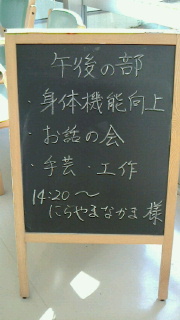 午後の部
・身体機能向上
・お話の会
・手芸・工作
14:20〜
にらやまなかま 様